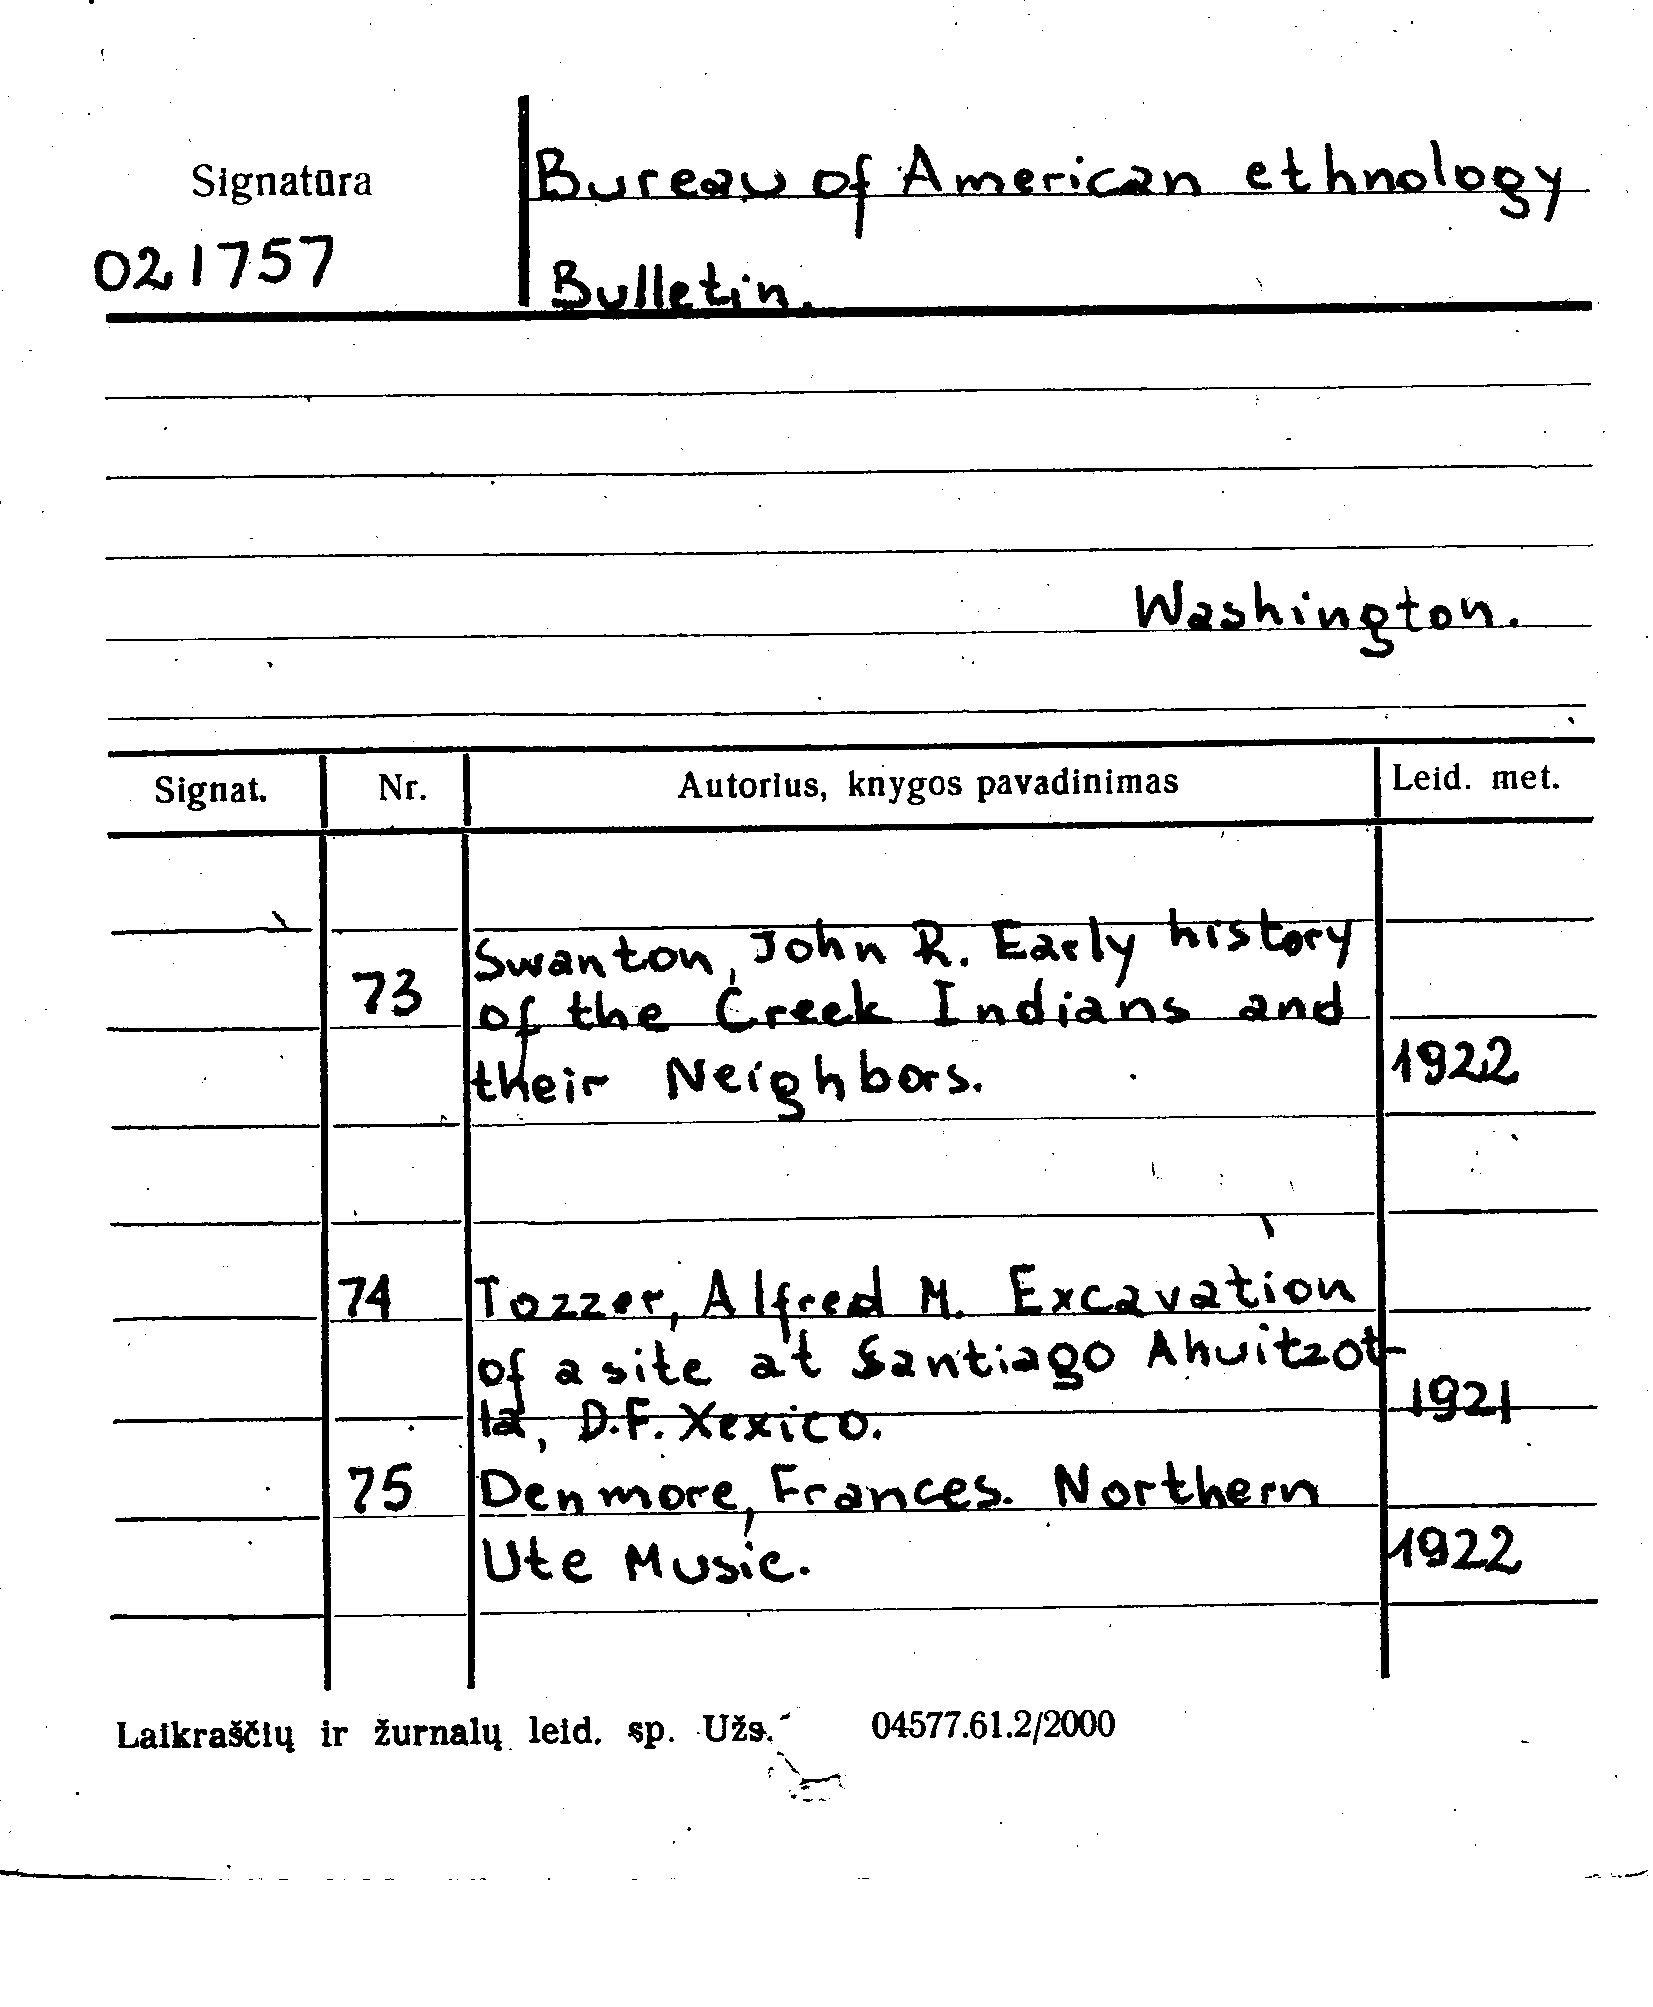 Signatūra
021757
Bureau of American ethnology
Bulletin.
Washington.
Signat. Nr. Autorius, knygos pavadinimas Leid. met.
73 Swanton, John R. Early history
of the Creek Indians and
their Neighbors. 1922
74 Tozzer, Alfred M. Excavation
of a site at Santiago Ahuitzot-
la, D.F. Xexico. 1921
75 Denmore, Frances. Northern
Ute Music. 1922
Laikraščių ir žurnalų leid. sp. Užs. 04577.61.2/2000